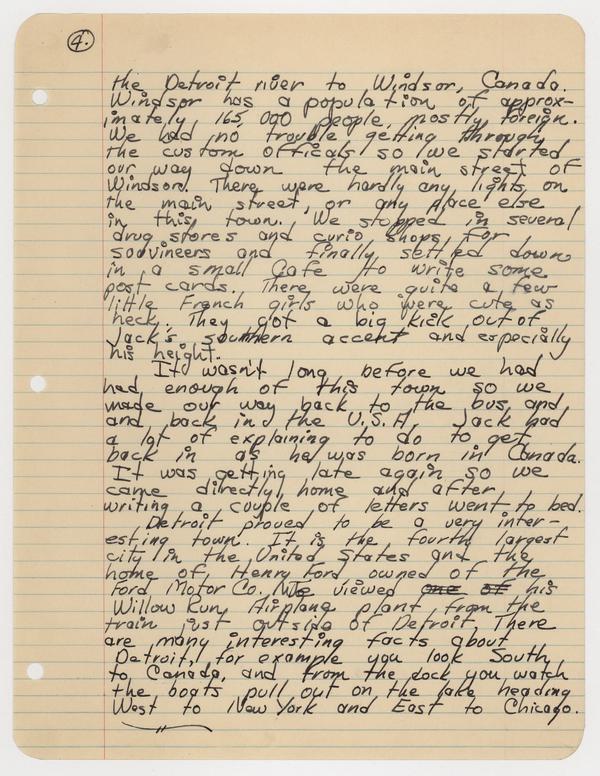 4.
the Detroit river to Windsor, Canada.
Windsor has a population of approx-
imately 165,000 people, mostly foreign.
We had no trouble getting through
the custom officals so we started
our way down the main street of
Windsor. There were hardly any lights on
the main street, or any place else
in this town. We stopped in several
drug stores and curio shops for
soovineers and finally settled down
in a small Cafe to write some
post cards. There were quite a few
little French girls who were cute as
heck. They got a big kick out of
Jack's southern accent and especially
his height.
It wasn't long before we had
had enough of this town so we
made our way back to the bus and
and back in the U.S.A. Jack had
a lot of explaining to do to get
back in as he was born in Canada.
It was getting late again so we
came directly home and after
writing a couple of letters went to bed.
Detroit proved to be a very inter-
esting town. It is the fourth largest
city in the United States and the
home of Henry Ford owned of the
Ford Motor Co. We viewed one of his
Willow Run Airplane plant from the
train just outside of Detroit. There
are many interesting facts about
Detroit, for example you look South
to Canada, and from the dock you watch
the boats pull out on the lake heading
West to New York and East to Chicago.